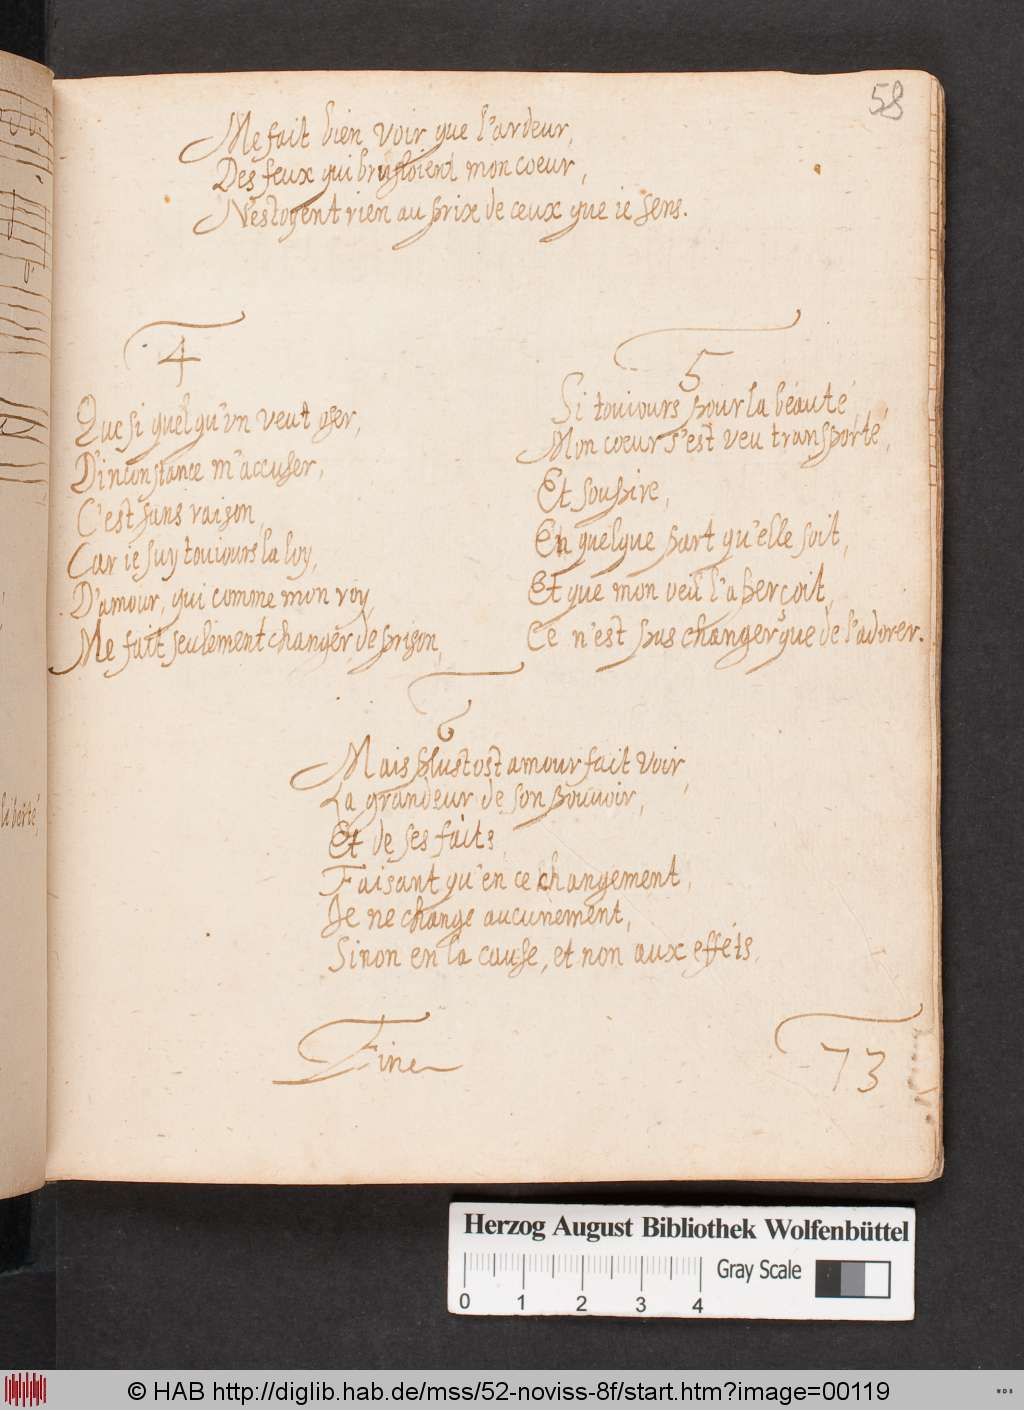 58
Me fait bien voir que l'ardeur,
Des feux qui brusloient mon coeur,
N'estoyent rien au prix de ceux que ie sens.
4
Que si quelqu'vn veut oser,
D'inconstance m'accuser,
C'est sans raison,
Car ie suy toujours la loy,
D'amour, qui comme mon roy,
Me fait seulement changer de prison,
5
Si toujours pour la béauté,
Mon coeur s'est veu transporté,
Et soupire,
En quelque part qu'elle soit,
Et que mon oeil l'apercoit,
Ce n'est pas changer que de l'adorer.
6
Mais plustost amour fait voir,
La grandeur de son pouuoir,
Et de ses faits,
Faisant qu'en ce changement,
Je ne change aucunement,
Sinon en la cause, et non aux effets.
Fine
73
liberté,
Herzog August Bibliothek Wolfenbüttel
0 1 2 3 4
Gray Scale
© HAB http://diglib.hab.de/mss/52-noviss-8f/start.htm?image=00119